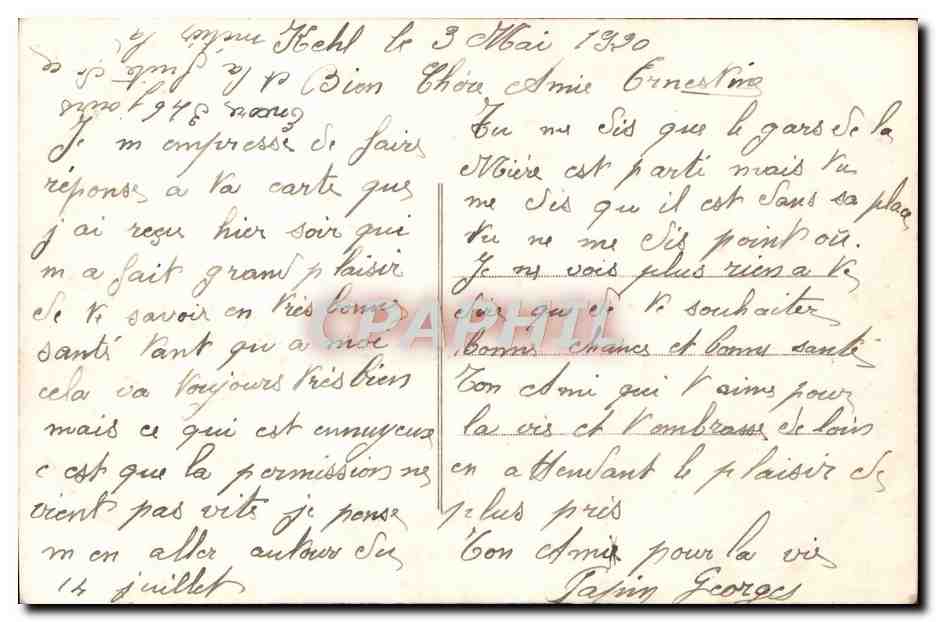 Kehl le 3 Mai 1920
Bien Chère Amie Ernestine
Je m empresse de faire
réponse a ta carte que
j ai reçu hier soir qui
m a fait grand plaisir
de te savoir en très bonne
santé tant qu a moi
cela va toujours très bien
mais ce qui est ennuyeux
c est que la permission ne
vient pas vite je pense
m en aller autour du
14 juillet
Tu me dis que le gars de la
Mière est parti mais tu
me dis qu il est dans sa place
tu ne me dis point où.
Je ne vois plus rien a te
dire que de te souhaiter
bonne chance et bonne santé
Ton Ami qui t aime pour
la vie et t embrasse de loin
en attendant le plaisir de
plus près
Ton Ami pour la vie
Papin Georges
encore 346 jours
et la fuite
CPAPHIL